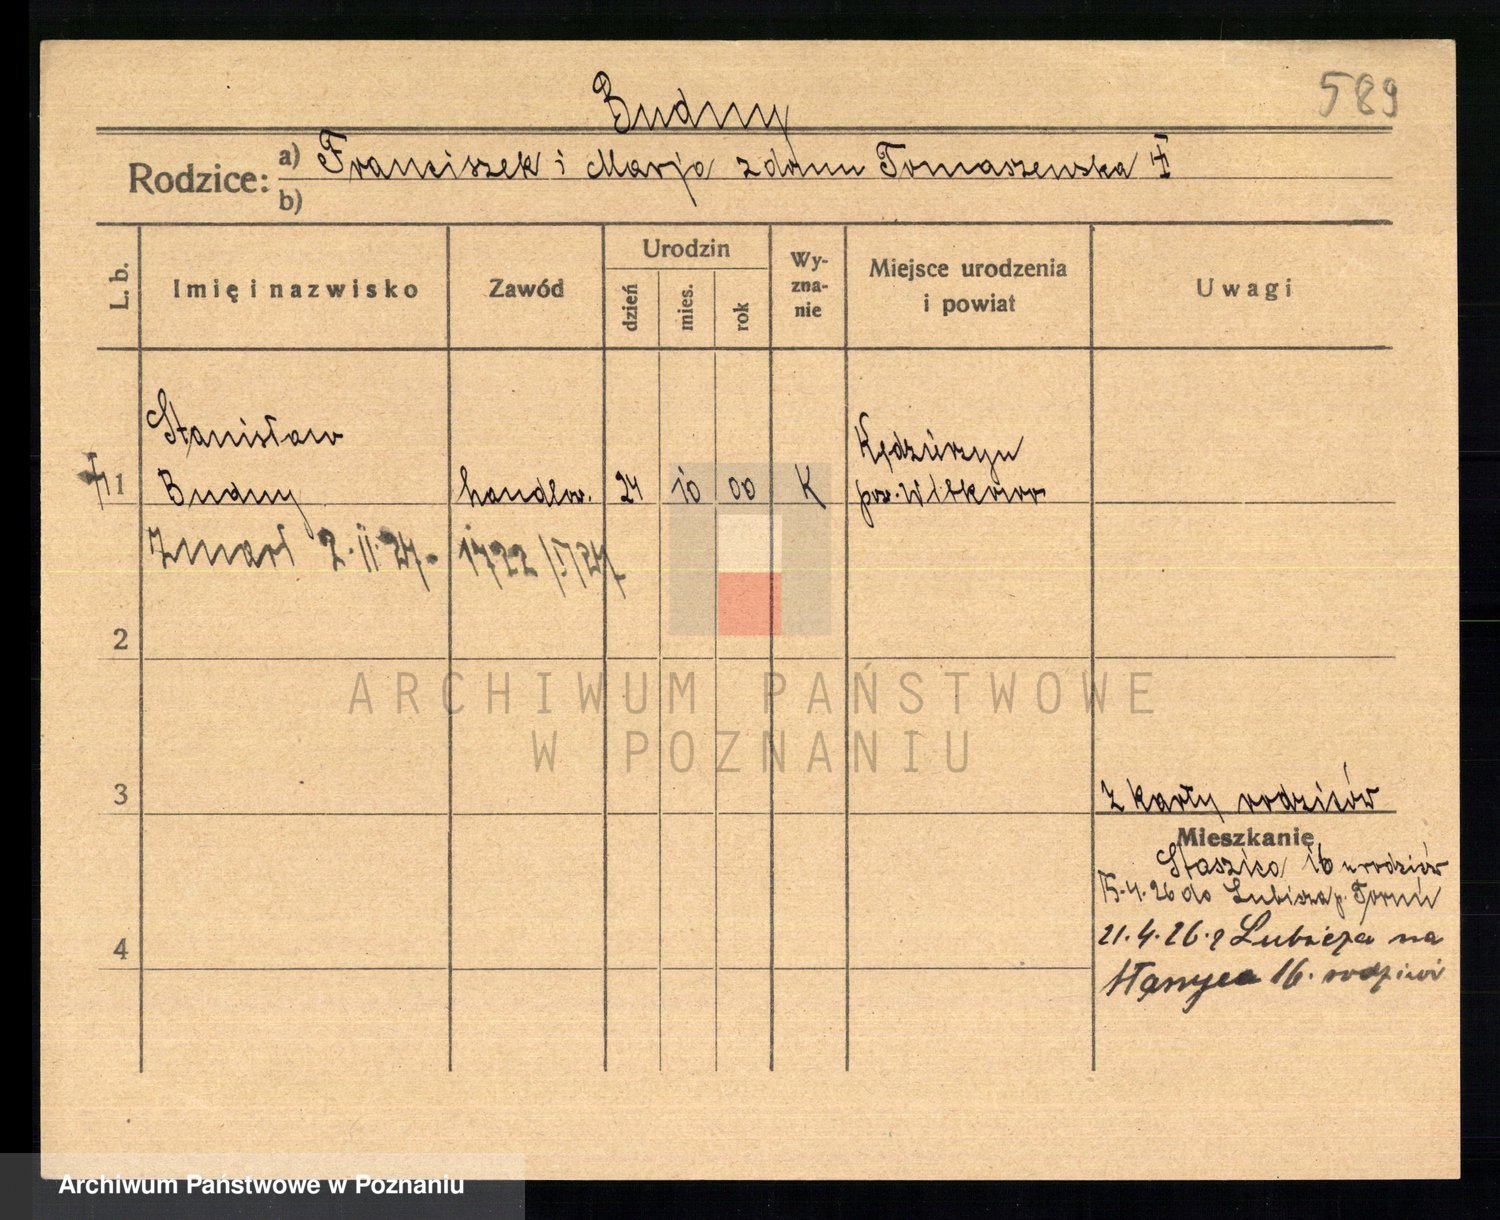 589
Budny
Rodzice: a) Franciszek i Marja z domu Tomaszewska
b)
L. b.
Imię i nazwisko
Zawód
Urodzin
dzień
mies.
rok
Wy-
zna-
nie
Miejsce urodzenia
i powiat
Uwagi
Stanisław
1 Budny
handlow.
24
10
00
K
Kędzierzyn
pow. Witkowo
Zmarł 2.II.27.
2
3
z karty rodziców
Mieszkanie
Staszica 16 u rodziców
15.4.26 do Lubicza p. Toruń
4
21.4.26 z Lubicza na
16. rodziców
ARCHIWUM PAŃSTWOWE
W POZNANIU
Archiwum Państwowe w Poznaniu